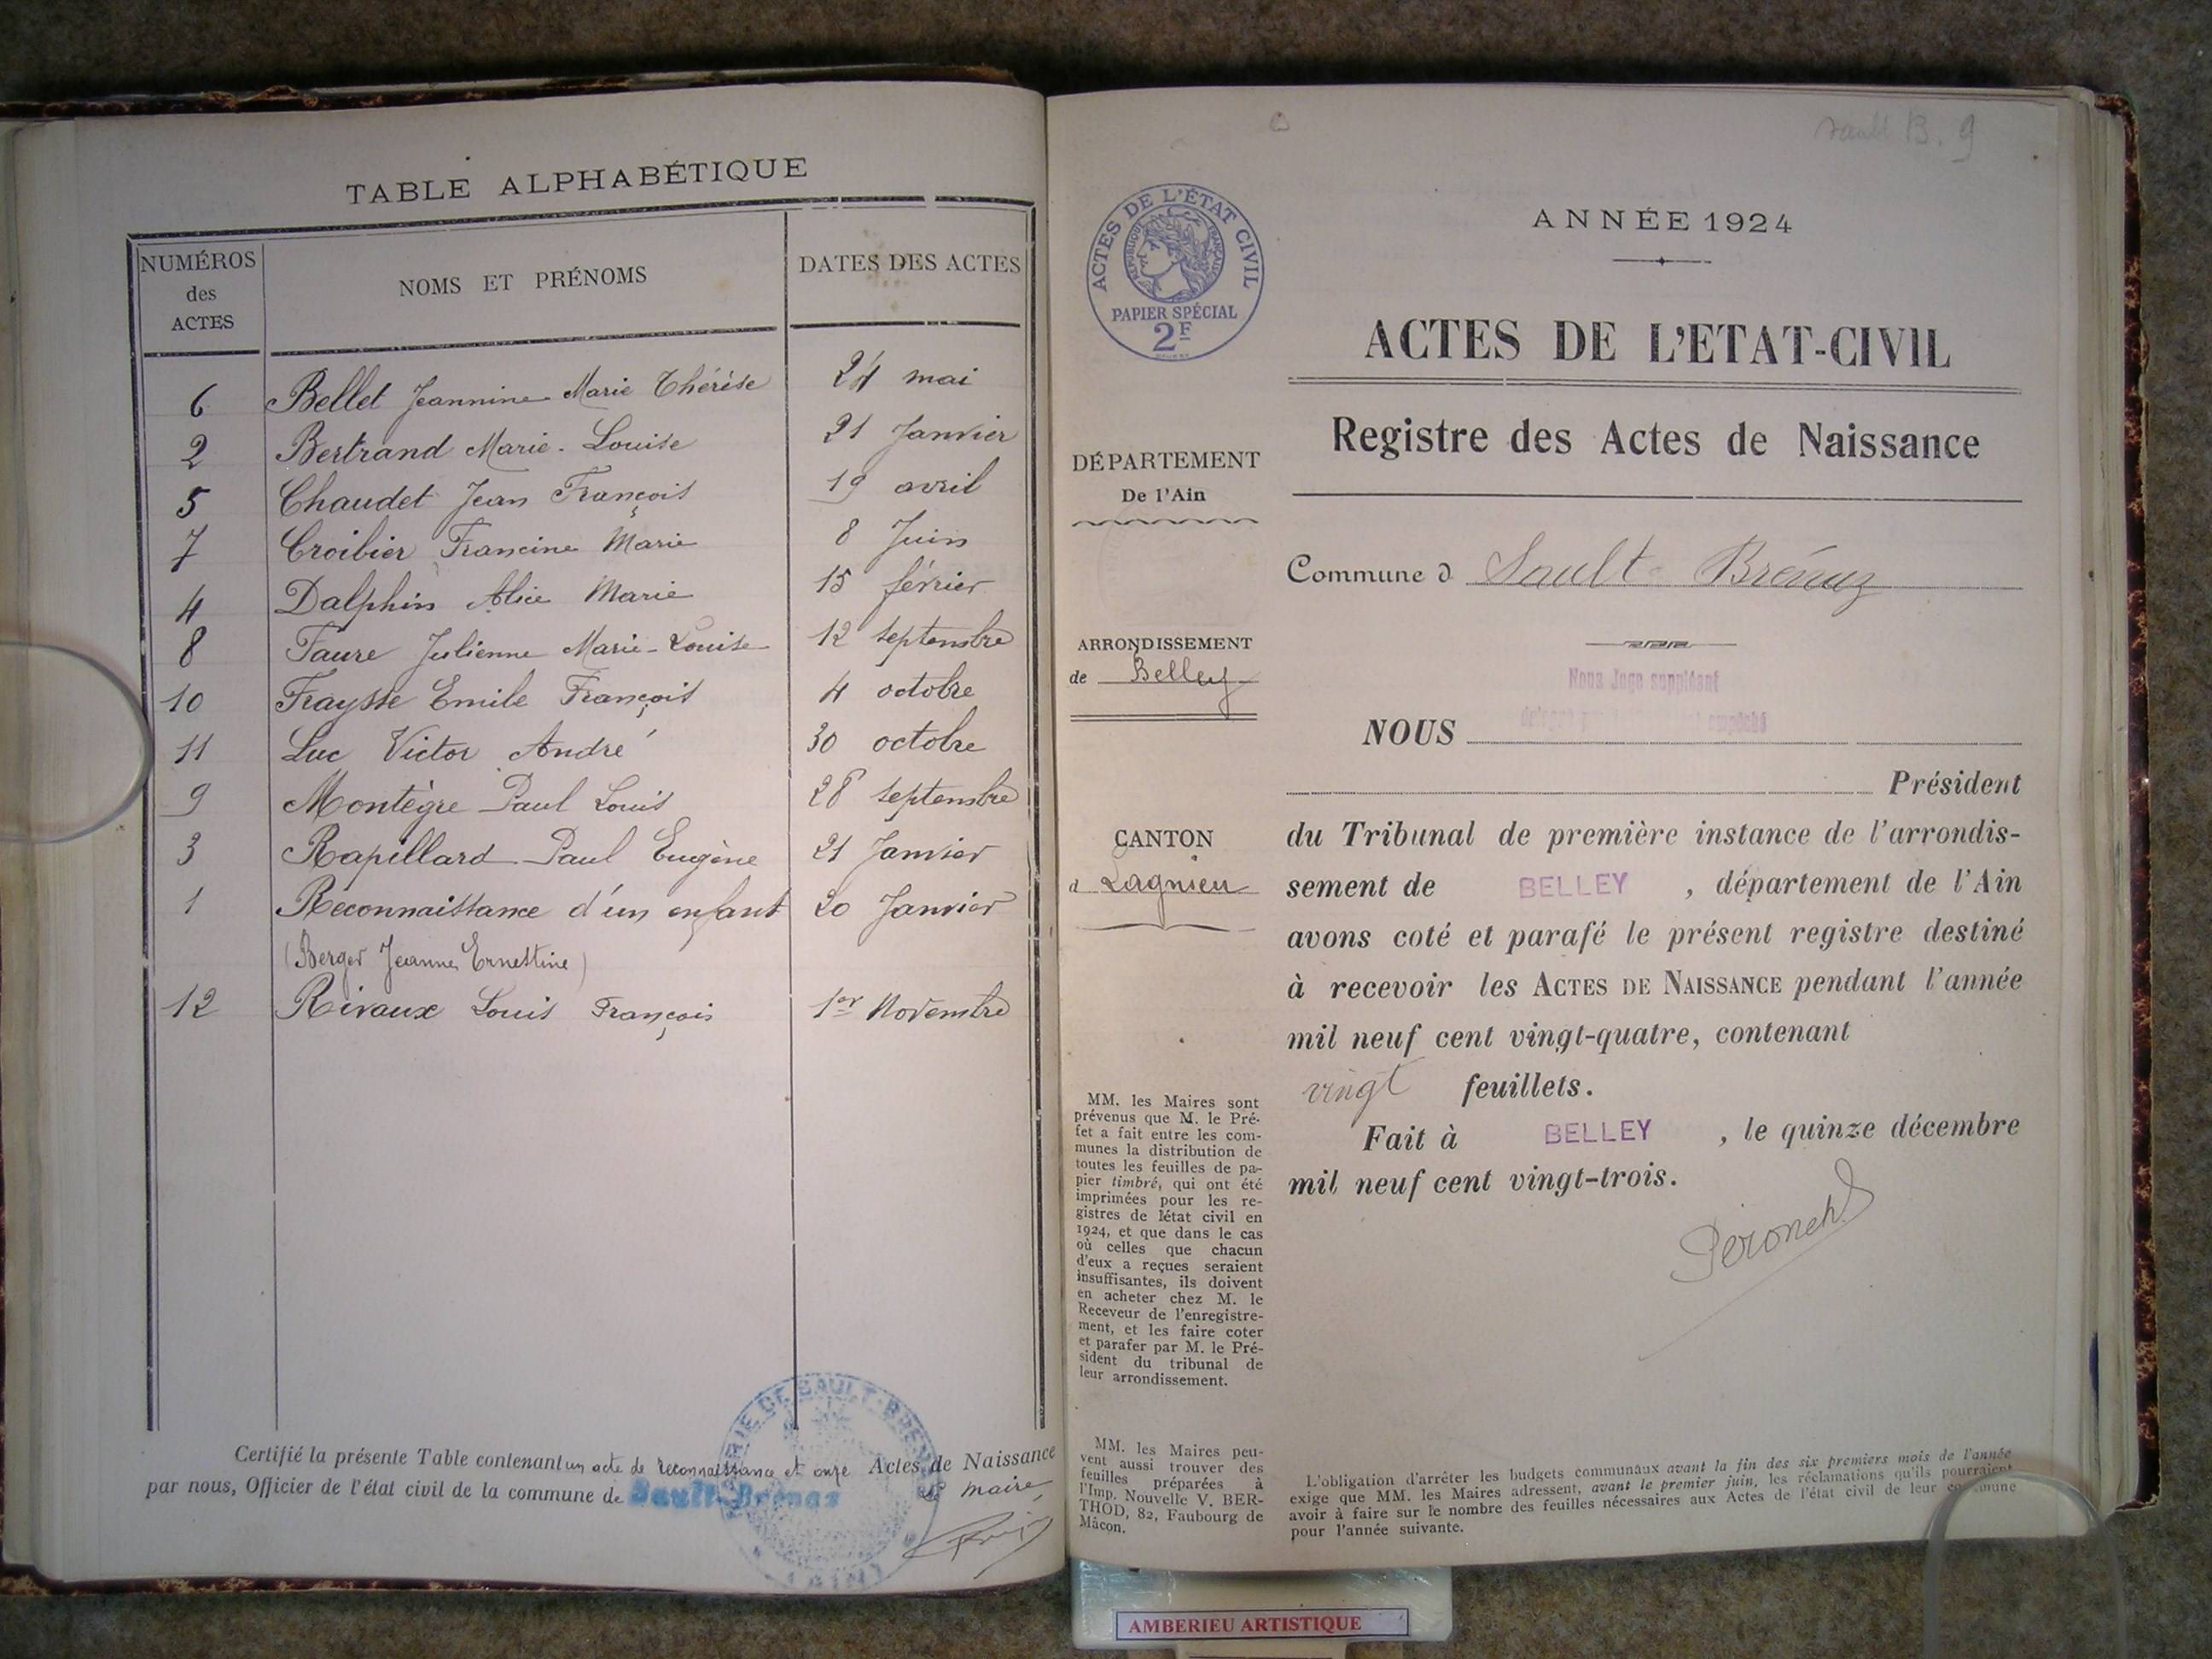 TABLE ALPHABÉTIQUE
NUMÉROS des ACTES
NOMS ET PRÉNOMS
DATES DES ACTES
6 Bellet Jeannine Marie Thérèse 24 mai
2 Bertrand Marie-Louise 21 Janvier
5 Chaudet Jean François 19 avril
7 Croibier Francine Marie 8 Juin
4 Dalphin Alice Marie 15 février
8 Faure Julienne Marie-Louise 12 septembre
10 Fraysse Emile François 4 octobre
11 Luc Victor André 30 octobre
9 Montègre Paul Louis 28 septembre
3 Rapillard Paul Eugène 21 Janvier
1 Reconnaissance d'un enfant 20 Janvier
(Berger Jeanne Ernestine)
12 Rivaux Louis François 1er Novembre
Certifié la présente Table contenant un acte de reconnaissance et onze Actes de Naissance
par nous, Officier de l'état civil de la commune de Sault-Brénaz maire
Sault B. 9
ACTES DE L'ÉTAT CIVIL
RÉPUBLIQUE FRANÇAISE
PAPIER SPÉCIAL
2F
ANNÉE 1924
ACTES DE L'ETAT-CIVIL
Registre des Actes de Naissance
DÉPARTEMENT
De l'Ain
Commune d Sault-Brénaz
ARRONDISSEMENT
de Belley
Nous Juge suppléant
NOUS
Président
CANTON
d Lagnieu
du Tribunal de première instance de l'arrondis-
sement de BELLEY, département de l'Ain
avons coté et parafé le présent registre destiné
à recevoir les ACTES DE NAISSANCE pendant l'année
mil neuf cent vingt-quatre, contenant
vingt feuillets.
Fait à BELLEY, le quinze décembre
mil neuf cent vingt-trois.
MM. les Maires sont
prévenus que M. le Pré-
fet a fait entre les com-
munes la distribution de
toutes les feuilles de pa-
pier timbré, qui ont été
imprimées pour les re-
gistres de létat civil en
1924, et que dans le cas
où celles que chacun
d'eux a reçues seraient
insuffisantes, ils doivent
en acheter chez M. le
Receveur de l'enregistre-
ment, et les faire coter
et parafer par M. le Pré-
sident du tribunal de
leur arrondissement.
MM. les Maires peu-
vent aussi trouver des
feuilles préparées à
l'Imp. Nouvelle V. BER-
THOD, 82, Faubourg de
Mâcon.
L'obligation d'arrêter les budgets communaux avant la fin des six premiers mois de l'année
exige que MM. les Maires adressent, avant le premier juin, les réclamations qu'ils pourraient
avoir à faire sur le nombre des feuilles nécessaires aux Actes de l'état civil de leur commune
pour l'année suivante.
AMBERIEU ARTISTIQUE